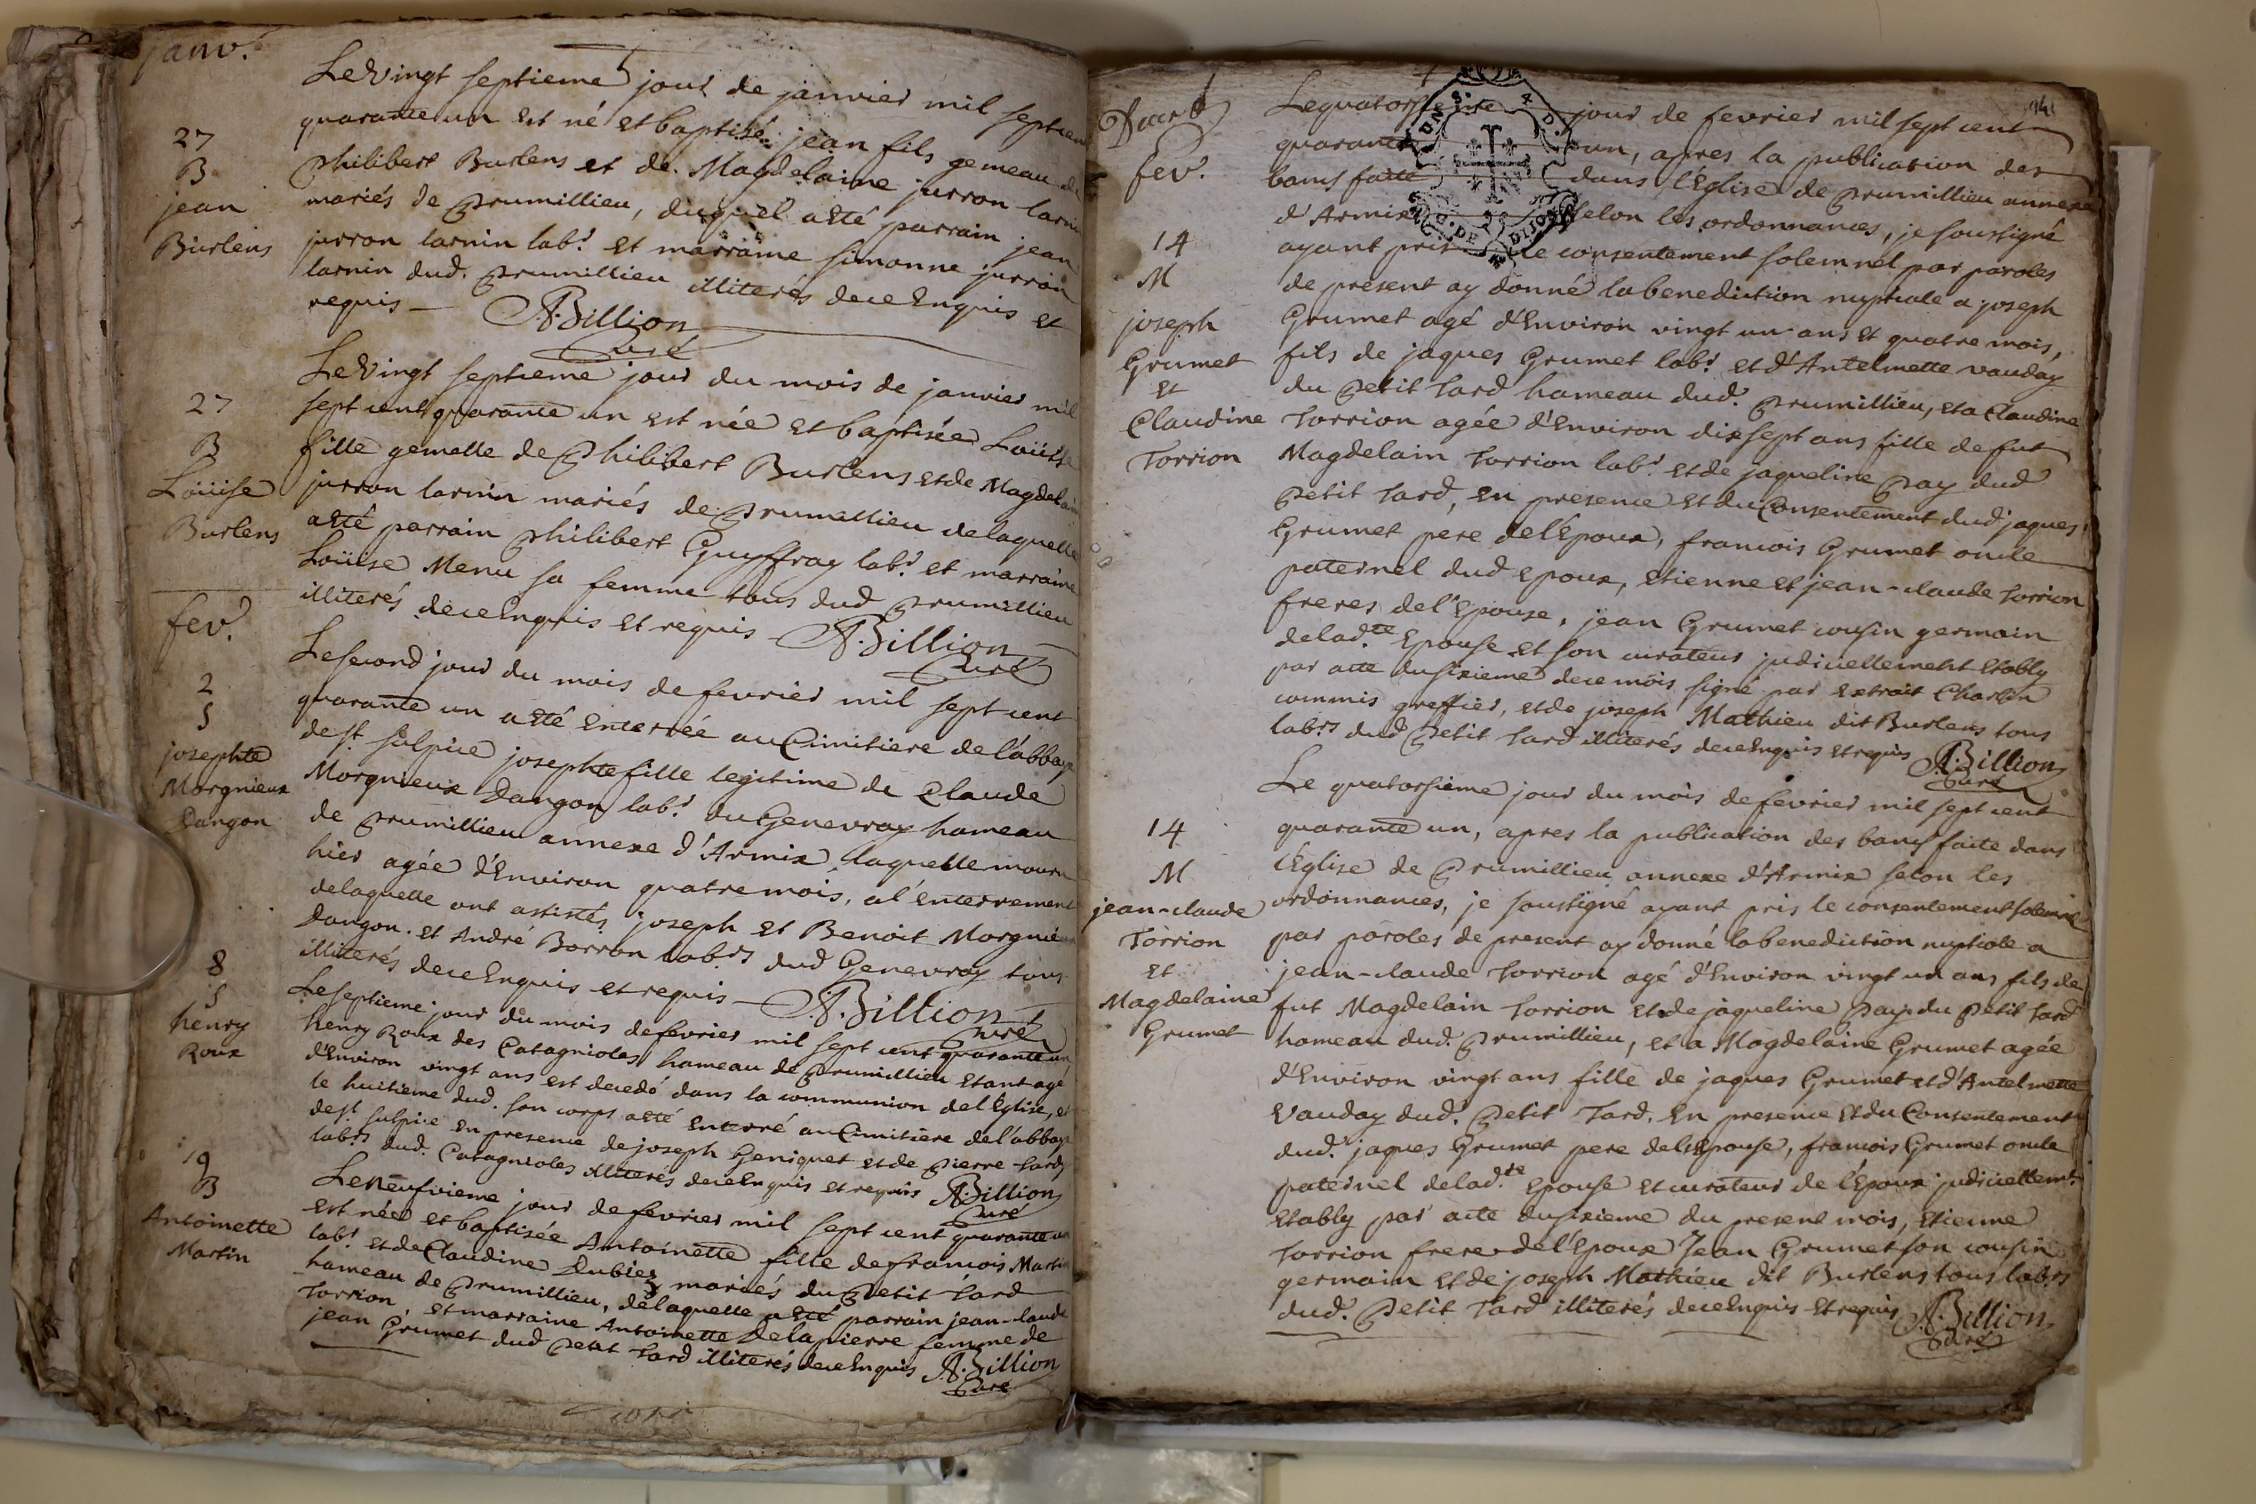 janv.r
27
B
jean
Burlens
Le Vingt septieme jour de janvier mil sept cent
quarante un est né et baptisé jean fils gemeau de
Philibert Burlens et de Magdelaine jurron larnin
mariés de Prumillieu, duquel a esté parrain jean
jurron larnin lab.r et marraine simonne jurron
larnin dud. Prumillieu illiterés de ce Enquis et
requis — A. Billion
Curé
27
B
Loüise
Burlens
Le Vingt septieme jour du mois de janvier mil
sept cent quarante un est née et baptisée Loüise
fille gemelle de Philibert Burlens et de Magdelaine
jurron larnin mariés de Prumillieu de laquelle
a esté parrain Philibert Guyffray lab.r et marraine
Loüise Menu sa femme tous dud Prumillieu
illiterés de ce Enquis et requis — A. Billion
Curé
fev.r
2
S
josephte
Morgnieux
Dangon
Le second jour du mois de fevrier mil sept cent
quarante un a esté Enterrée au Cimitiere de l'abbaye
de st. sulpice josephte fille legitime de Claude
Morgnieux Dangon lab.r du Genevray hameau
de Prumillieu annexe d'Armix laquelle mouru
hier agée d'Environ quatre mois, a l'enterrement
de laquelle ont assistés joseph et Benoit Morgnieux
Dangon. et André Borron lab.rs dud Genevray tous
illiterés de ce Enquis et requis — A. Billion
Curé
8
S
henry
Roux
Le septieme jour du mois de fevrier mil sept cent quarante un
henry Roux des Catagnoles hameau de Prumillieu etant agé
d'Environ vingt ans est decedé dans la communion de l'Eglise, et
le huitieme dud. son corps a esté Enterré au Cimitiere de l'abbaye
de st sulpice en presence de joseph Geniquet et de Pierre tardy
lab.rs dud. Catagnioles illiterés de ce Enquis et requis A. Billion
Curé
19
B
Antoinette
Martin
Le neufvieme jour de fevrier mil sept cent quarante un
est née et baptisée Antoinette fille de francois Martin
lab.r et de Claudine Dubiez mariés du Petit tard
hameau de Prumillieu, de laquelle a esté parrain jean-claude
Torrion, et marraine Antoinette Delapierre femme de
jean Grumet dud Petit tard illiterés de ce Enquis A. Billion
Curé
fev.r
14
M
joseph
Grumet
et
Claudine
Torrion
Le quatorsieme jour de fevrier mil sept cent
quarante un, apres la publication des
bans faite dans l'Eglise de Prumillieu annexe
d'Armix selon les ordonnances, je soussigné
ayant pris le consentement solemnel par paroles
de present ay donné la benediction nuptiale a joseph
Grumet agé d'Environ vingt un ans et quatre mois,
fils de jaques Grumet lab.r et d'Antelmette vauday
du Petit tard hameau dud. Prumillieu, et a Claudine
Torrion agée d'Environ dix sept ans fille de fut
Magdelain Torrion lab.r et de jaqueline Pay dud
Petit tard, en presence et du Consentement dud jaques
Grumet pere de l'Epoux, francois Grumet oncle
paternel dud epoux, etienne et jean-claude Torrion
freres de l'Epouse, jean Grumet cousin germain
de lad.te Epouse et son curateur judiciellement etably
par acte du sixieme de ce mois signé par extrait Charlin
commis greffier, et de joseph Mathieu dit Burlens tous
lab.rs dud Petit tard illiterés de ce Enquis et requis A. Billion
Curé
14
M
jean-claude
Torrion
et
Magdelaine
Grumet
Le quatorsieme jour du mois de fevrier mil sept cent
quarante un, apres la publication des bans faite dans
l'Eglise de Prumillieu annexe d'Armix selon les
ordonnances, je soussigné ayant pris le consentement solemnel
par paroles de present ay donné la benediction nuptiale a
jean-claude Torrion agé d'Environ vingt un ans fils de
fut Magdelain Torrion et de jaqueline Pay du Petit tard
hameau dud. Prumillieu, et a Magdelaine Grumet agée
d'Environ vingt ans fille de jaques Grumet et d'Antelmette
Vauday dud. Petit tard. En presence et du Consentement
dud. jaques Grumet pere de l'Epouse, francois Grumet oncle
paternel de lad.te epouse et curateur de l'Epoux judiciellem.t
etably par acte du sixieme du present mois, etienne
Torrion frere de l'Epoux Jean Grumet son cousin
germain et de joseph Mathieu dit Burlens tous lab.rs
dud. Petit tard illiterés de ce Enquis et requis A. Billion
Curé